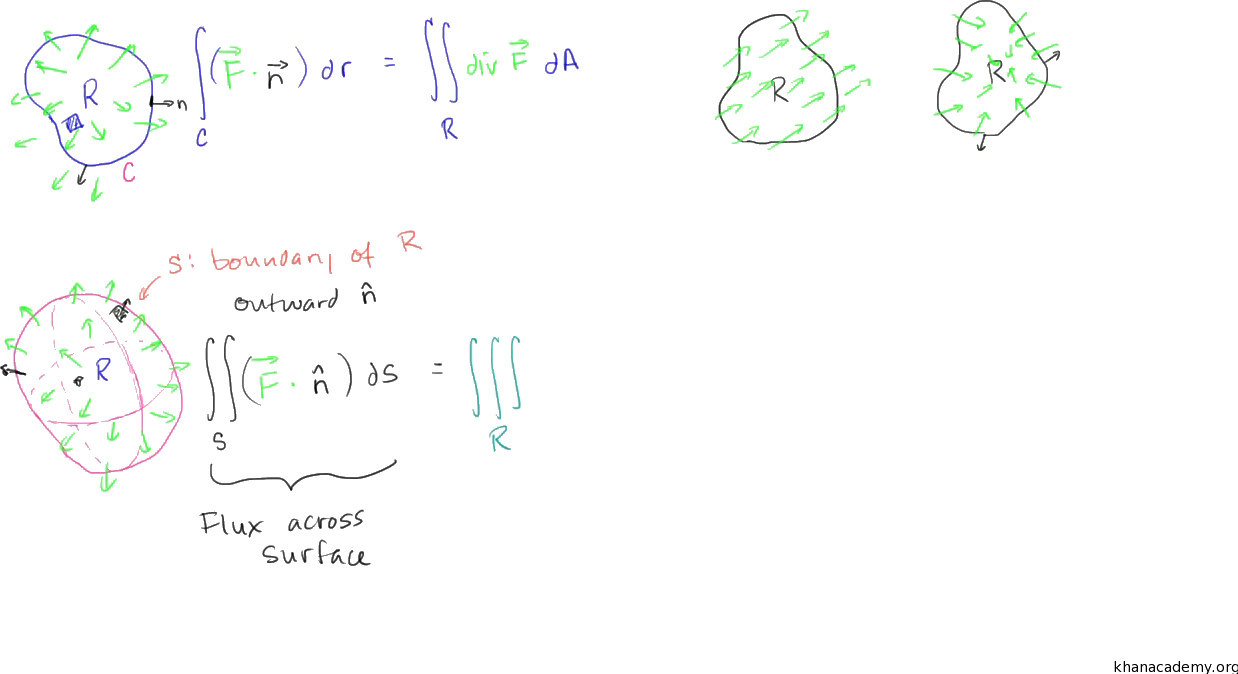 R
n
C
∫_C (F⃗ · n⃗) dr = ∬_R div F⃗ dA
R
R
S: boundary of R
outward n̂
R
∬_S (F⃗ · n̂) ds = ∭_R
Flux across
surface
khanacademy.org